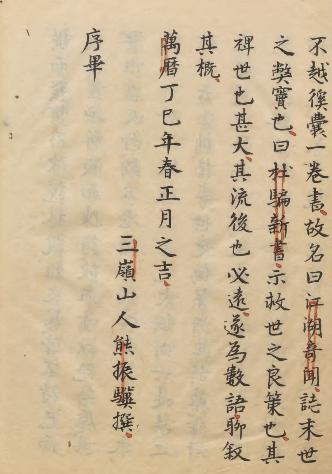 不越奚囊一卷書故名曰江湖奇聞誌末世
之獘竇也曰杜騙新書示救世之良策也其
裨世也甚大其流後也必遠遂為數語聊叙
其概
萬曆丁巳年春正月之吉
三嶺山人熊振驥撰
序畢